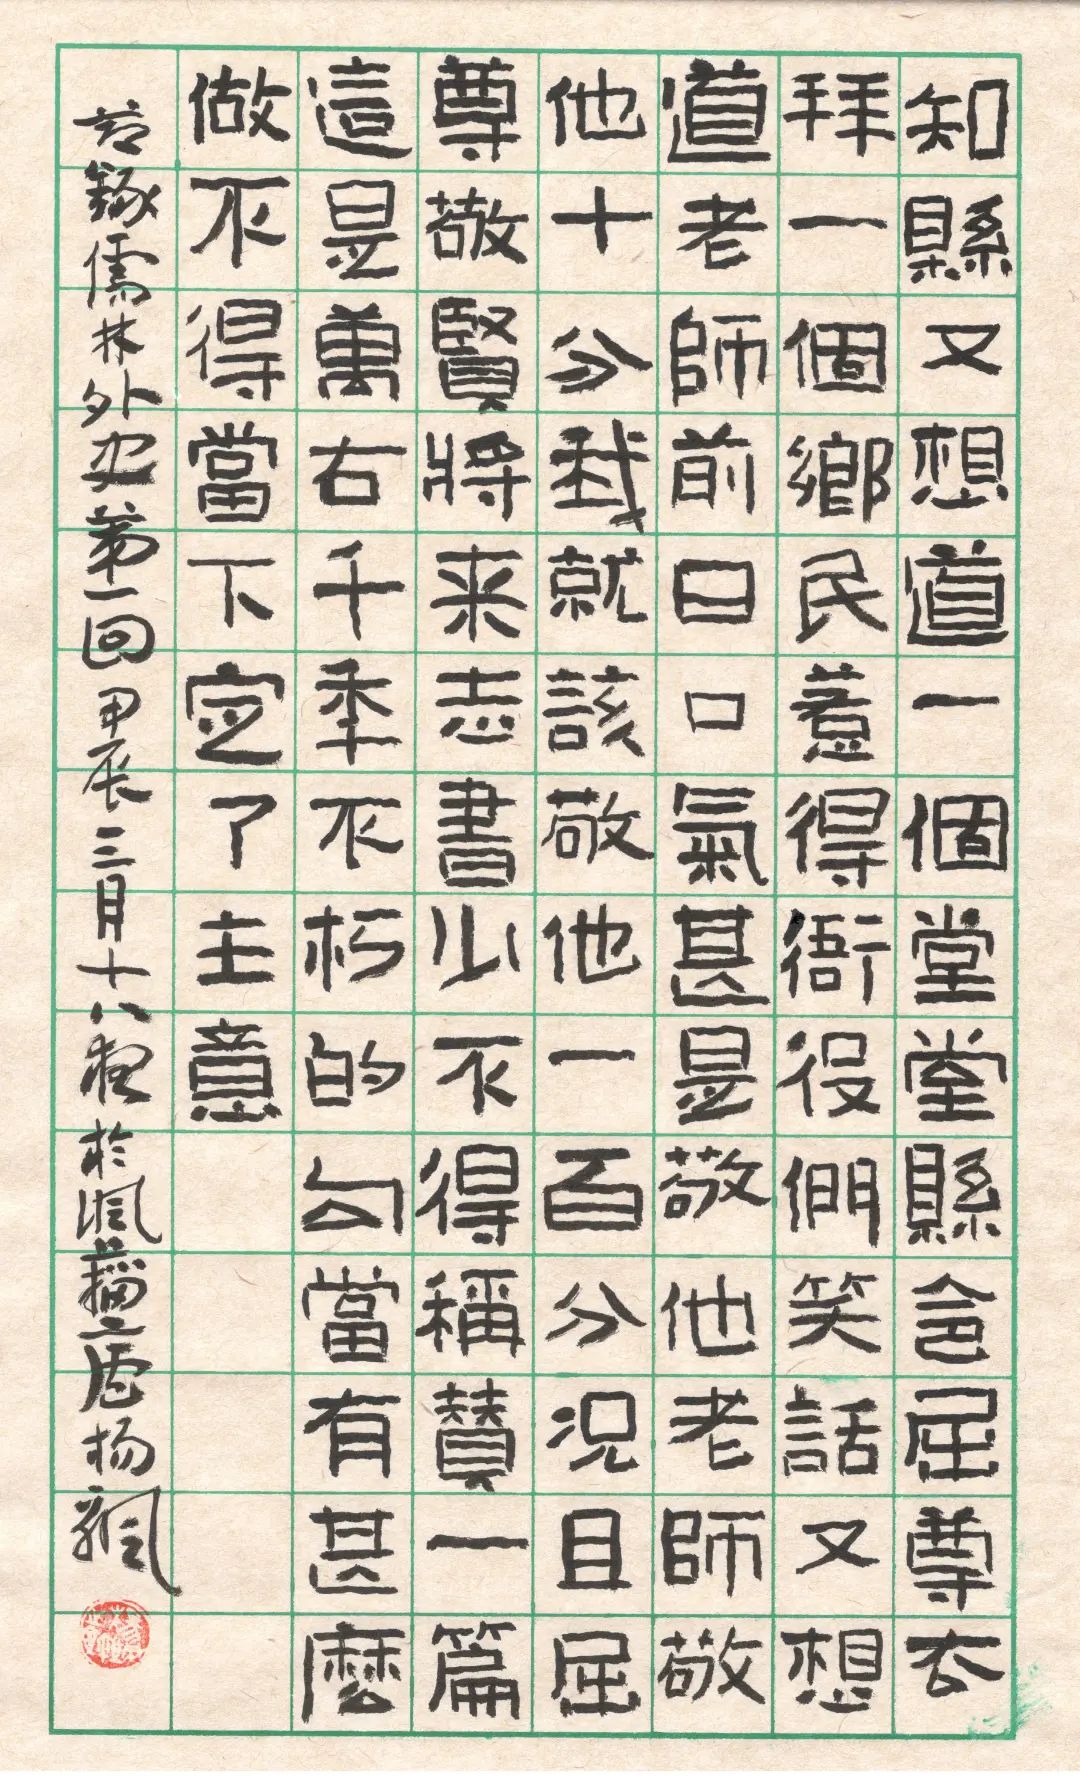 知縣又想道一個堂堂縣令屈尊去
拜一個鄉民惹得衙役們笑話又想
道老師前日口氣甚是敬他老師敬
他十分我就該敬他一百分況且屈
尊敬賢將来志書少不得稱贊一篇
這是萬右千年不朽的勾當有甚麼
做不得當下定了主意
节錄儒林外史第一回甲辰三月十八夜於扬飒